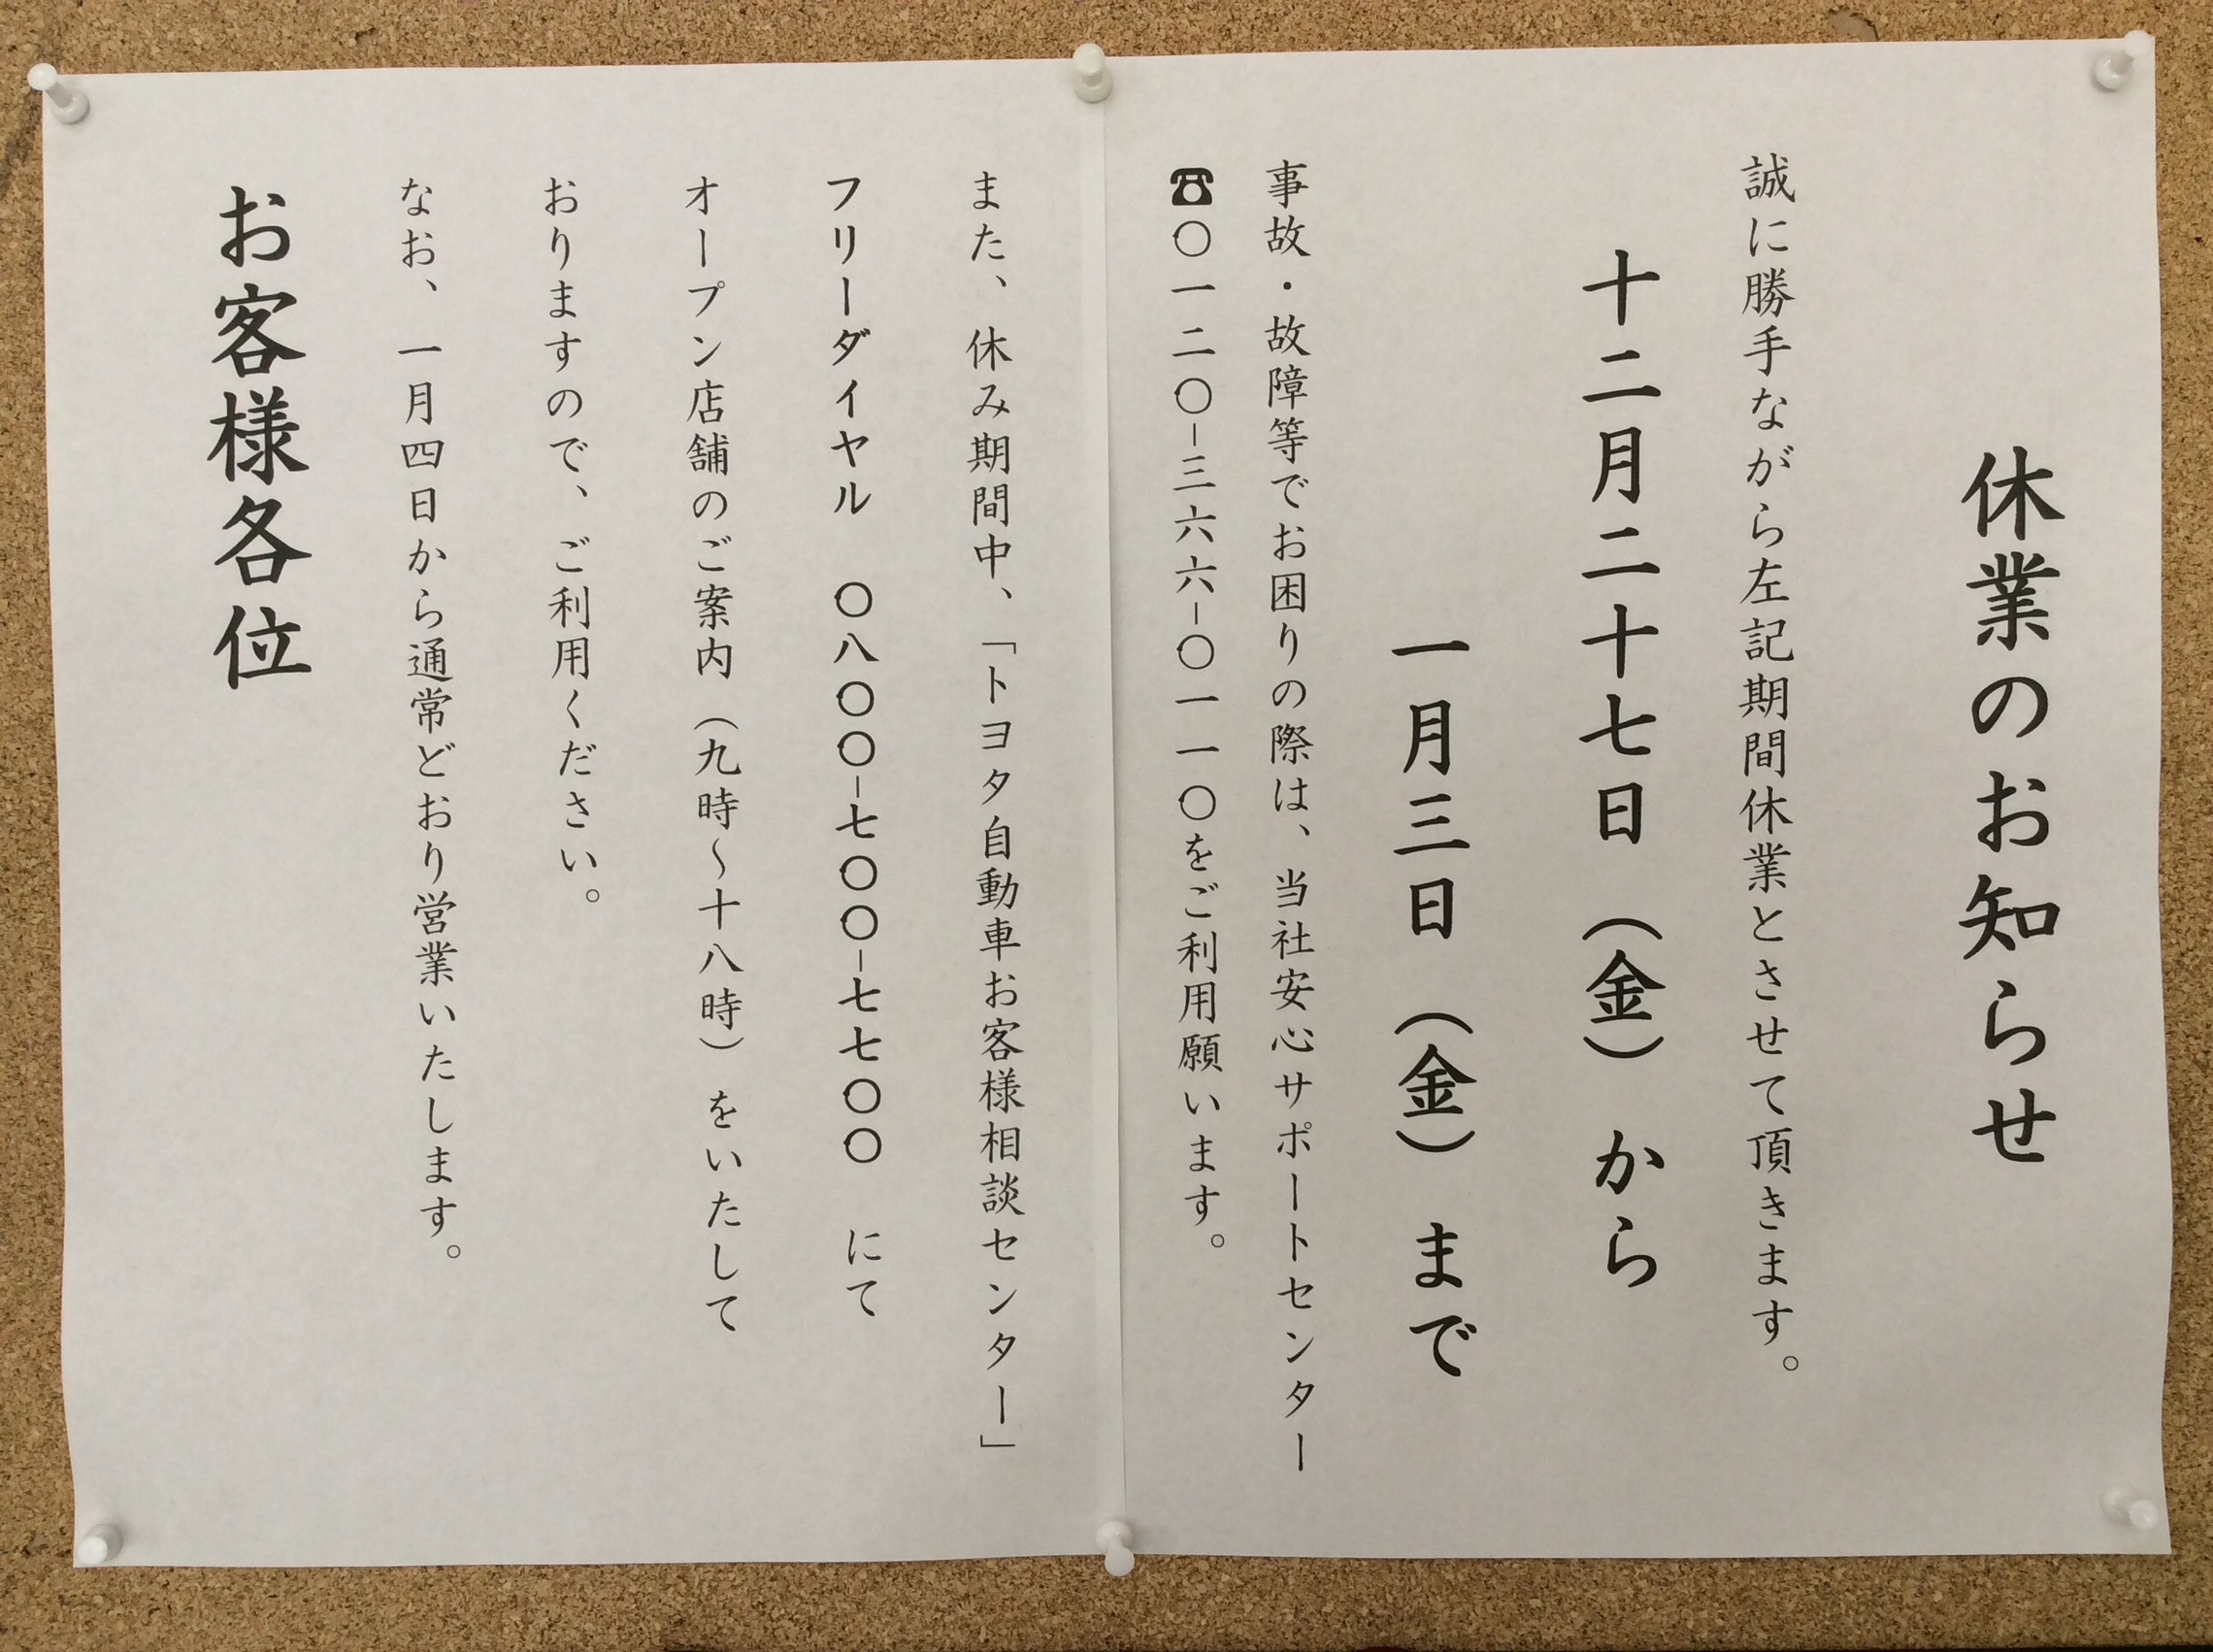 休業のお知らせ
誠に勝手ながら左記期間休業とさせて頂きます。
十二月二十七日（金）から
一月三日（金）まで
事故・故障等でお困りの際は、当社安心サポートセンター
☎〇一二〇－三六六－〇一一〇をご利用願います。
また、休み期間中、「トヨタ自動車お客様相談センター」
フリーダイヤル　〇八〇〇－七〇〇－七七〇〇　にて
オープン店舗のご案内（九時～十八時）をいたして
おりますので、ご利用ください。
なお、一月四日から通常どおり営業いたします。
お客様各位